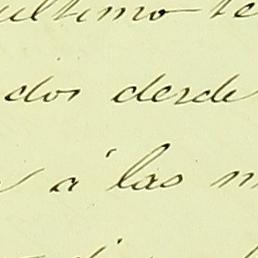 ultimo te
dos desde
s á las m